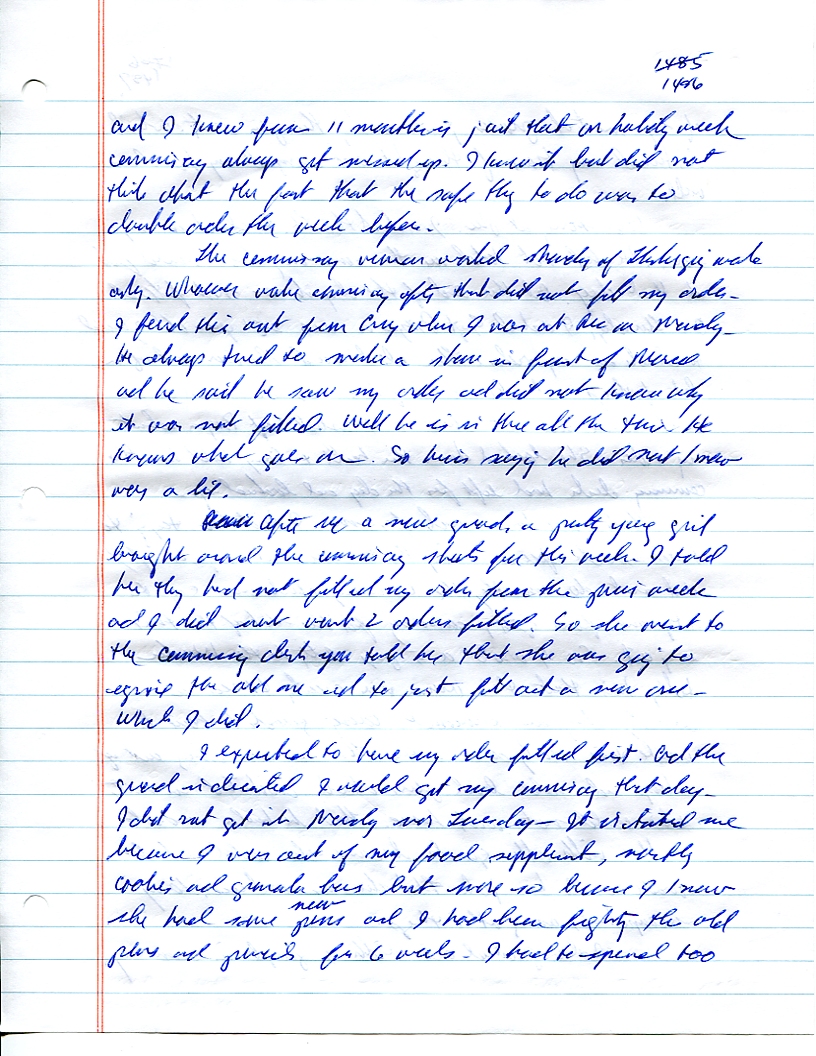 1485
1486
and I knew from 11 months in jail that on holiday week
commissary always got messed up. I knew it but did not
think about the fact that the safe thing to do was to
double order the week before.
The commissary woman worked Monday of Thanksgiving week
only. Whoever worked commissary after that did not fill my order.
I found this out from when I was at on Monday.
He always tried to make a show in front of
and he said he saw my order and did not know why
it was not filled. Well he is in there all the time. He
knows what goes on. So him saying he did not know
was a lie.
After a new guard, a pretty young girl
brought around the commissary sheets for this week. I told
her they had not filled my order from the previous week
and I did not want 2 orders filled. So she went to
the commissary told her that she was going to
the old one and to just fill out a new one -
which I did.
I expected to have my order filled first. And the
guard indicated I would get my commissary that day -
I did not get it Monday nor Tuesday - It irritated me
because I was out of my food supplement, mostly
cookies and granola bars but more so because I knew
new
she had some pens and I had been fighting the old
pens and pencils for 6 weeks. I had to spend too